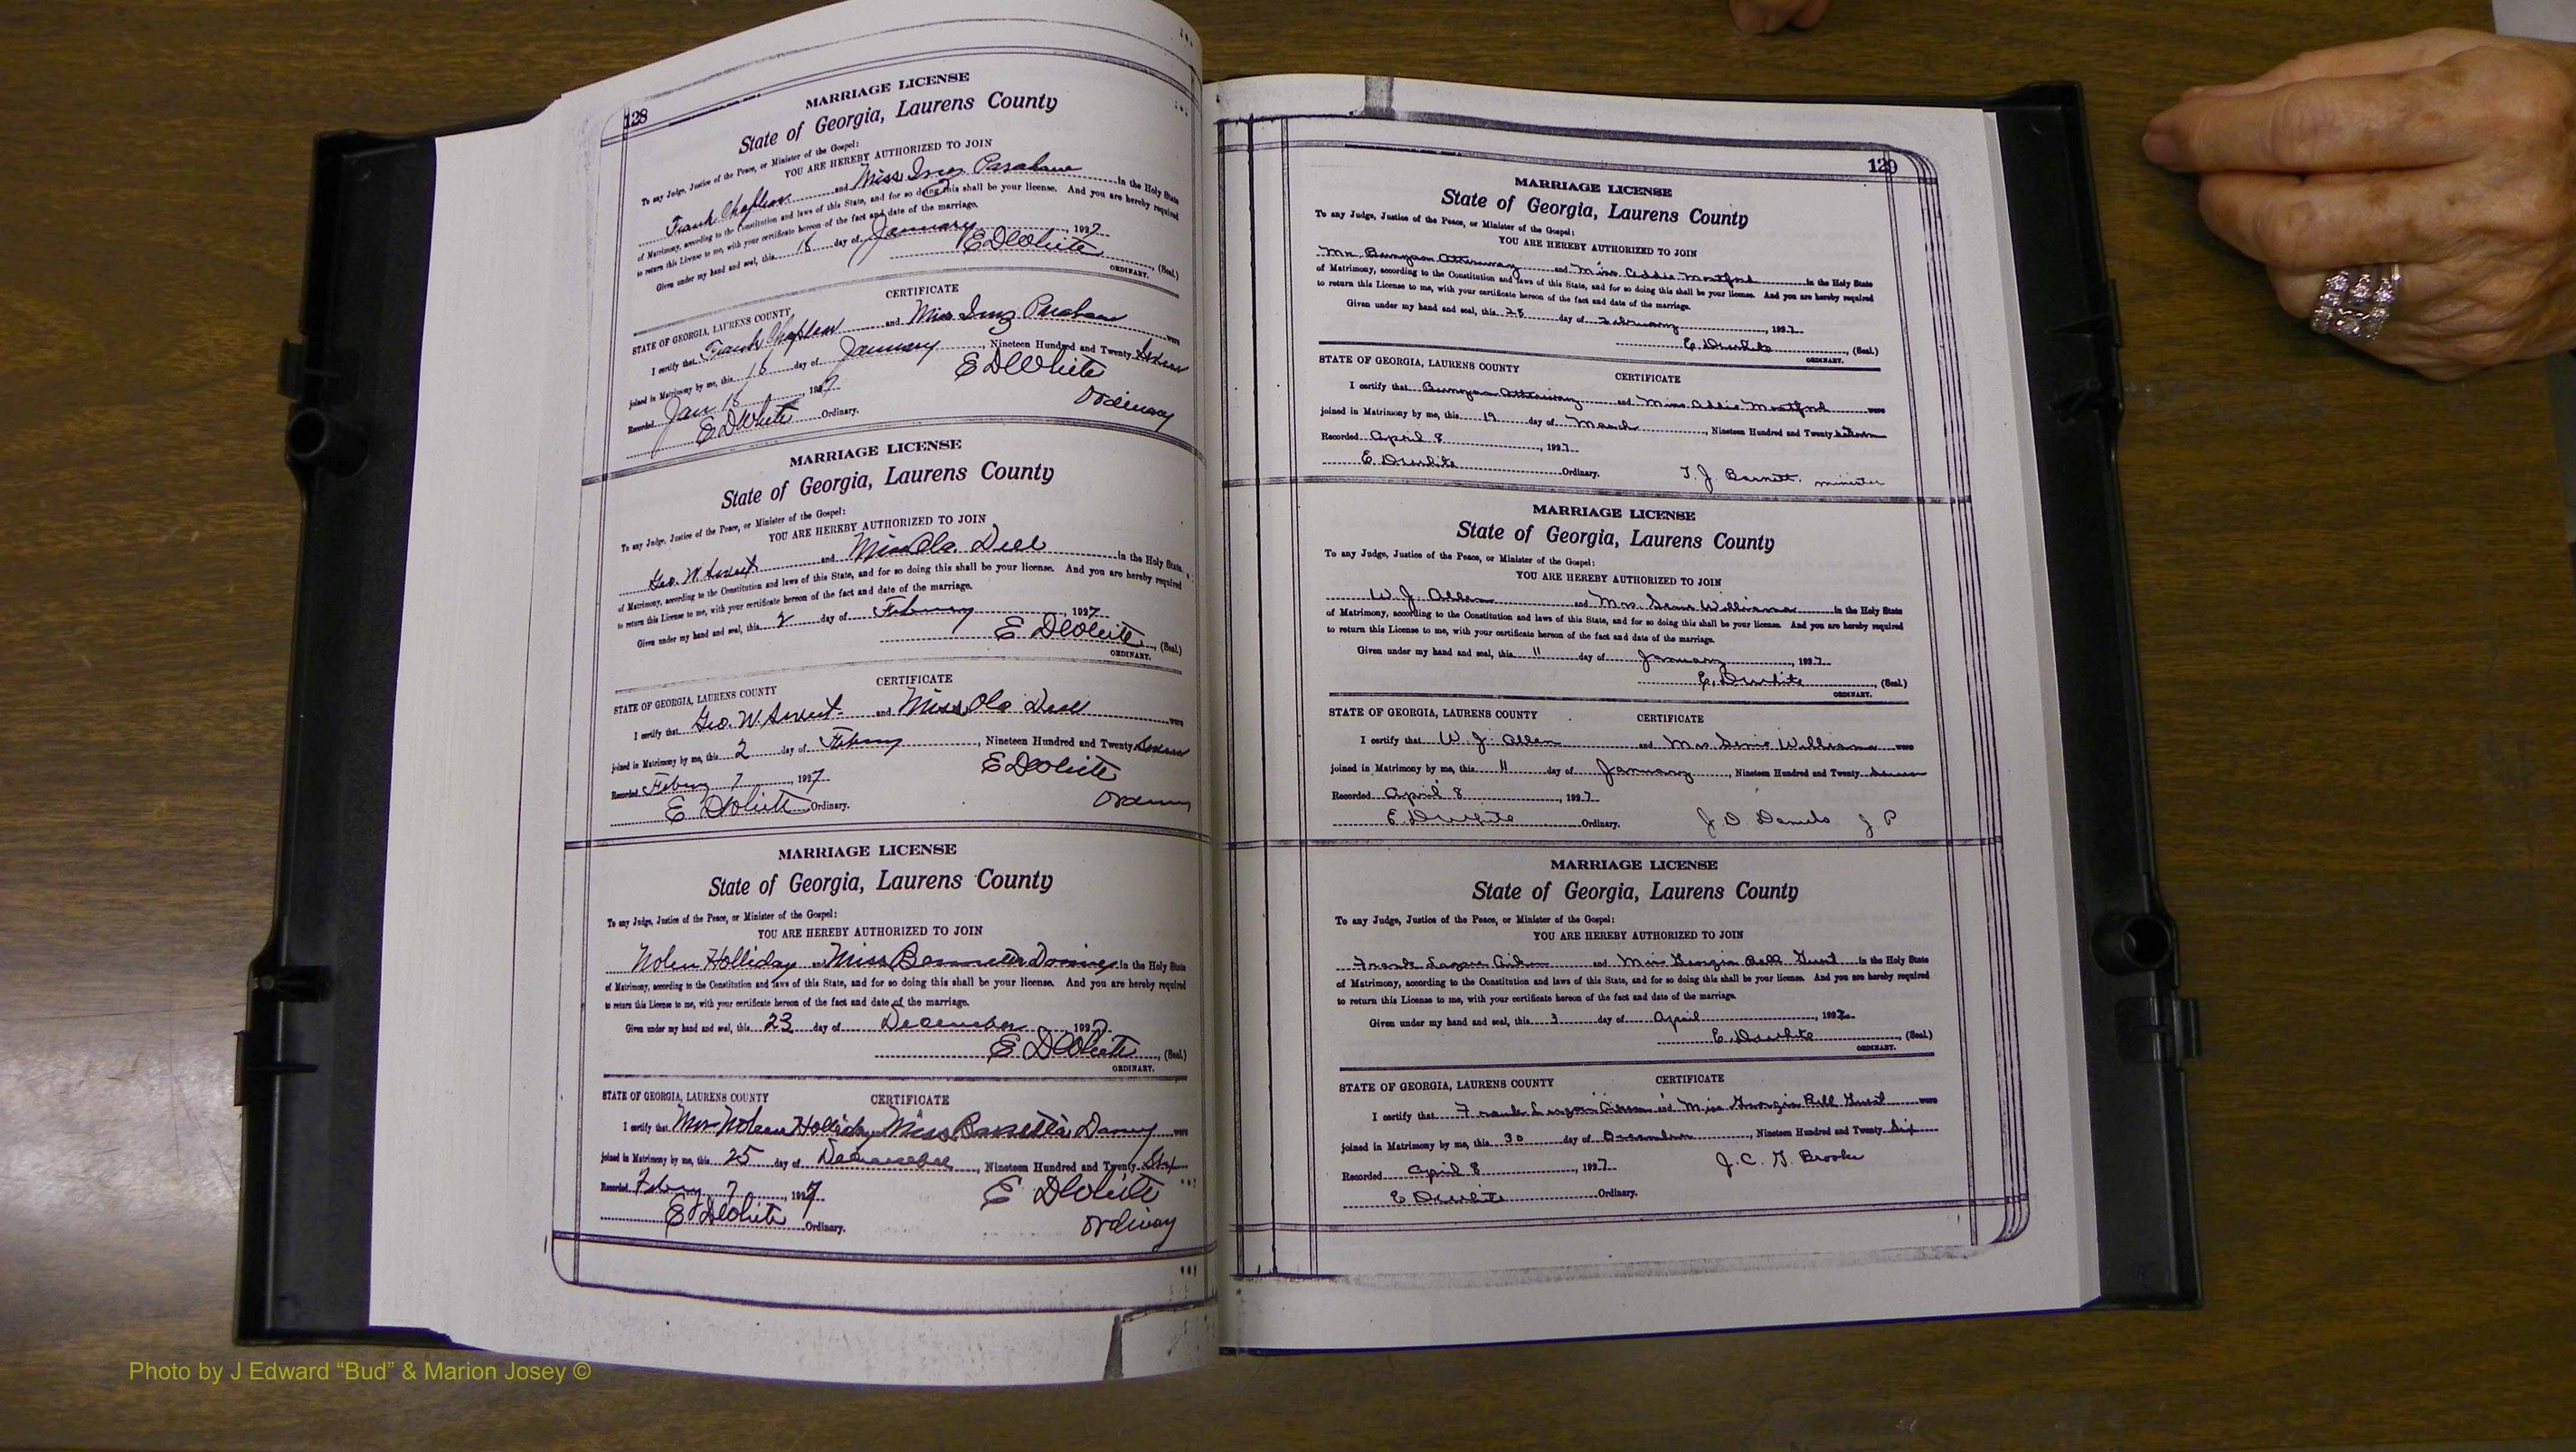 128
MARRIAGE LICENSE
State of Georgia, Laurens County
To any Judge, Justice of the Peace, or Minister of the Gospel:
YOU ARE HEREBY AUTHORIZED TO JOIN
Frank and Miss in the Holy State
of Matrimony, according to the Constitution and laws of this State, and for so doing this shall be your license. And you are hereby required
to return this License to me, with your certificate hereon of the fact and date of the marriage.
Given under my hand and seal, this day of January, 1927
E D White, (Seal.)
ORDINARY.
CERTIFICATE
STATE OF GEORGIA, LAURENS COUNTY,
I certify that Frank and Miss were
joined in Matrimony by me, this day of January, Nineteen Hundred and Twenty Seven
E D White
Recorded Jan, 1927
Ordinary
E D White Ordinary.
MARRIAGE LICENSE
State of Georgia, Laurens County
To any Judge, Justice of the Peace, or Minister of the Gospel:
YOU ARE HEREBY AUTHORIZED TO JOIN
Geo. W. and Miss Ola in the Holy State
of Matrimony, according to the Constitution and laws of this State, and for so doing this shall be your license. And you are hereby required
to return this License to me, with your certificate hereon of the fact and date of the marriage.
Given under my hand and seal, this 2 day of, 1927
E. D White, (Seal.)
ORDINARY.
CERTIFICATE
STATE OF GEORGIA, LAURENS COUNTY
I certify that Geo. W. and Miss Ola were
joined in Matrimony by me, this 2 day of, Nineteen Hundred and Twenty Seven
E D White
Recorded 7, 1927
E D White Ordinary.
MARRIAGE LICENSE
State of Georgia, Laurens County
To any Judge, Justice of the Peace, or Minister of the Gospel:
YOU ARE HEREBY AUTHORIZED TO JOIN
Nolen Holliday and Miss in the Holy State
of Matrimony, according to the Constitution and laws of this State, and for so doing this shall be your license. And you are hereby required
to return this License to me, with your certificate hereon of the fact and date of the marriage.
Given under my hand and seal, this 23 day of December, 192
E D White, (Seal.)
ORDINARY.
STATE OF GEORGIA, LAURENS COUNTY CERTIFICATE
I certify that Holliday Miss were
joined in Matrimony by me, this 25 day of, Nineteen Hundred and Twenty Six
Recorded 7, 1927
E D White
E D White Ordinary.
129
MARRIAGE LICENSE
State of Georgia, Laurens County
To any Judge, Justice of the Peace, or Minister of the Gospel:
YOU ARE HEREBY AUTHORIZED TO JOIN
Mr. Bunyan Attaway and Miss Addie Montford in the Holy State
of Matrimony, according to the Constitution and laws of this State, and for so doing this shall be your license. And you are hereby required
to return this License to me, with your certificate hereon of the fact and date of the marriage.
Given under my hand and seal, this 28 day of February, 1927
E. D White, (Seal.)
ORDINARY.
STATE OF GEORGIA, LAURENS COUNTY
CERTIFICATE
I certify that Bunyan Attaway and Miss Addie Montford were
joined in Matrimony by me, this 19 day of March, Nineteen Hundred and Twenty
Recorded April 8, 1927
E D White Ordinary.
T. J. Barnett, minister
MARRIAGE LICENSE
State of Georgia, Laurens County
To any Judge, Justice of the Peace, or Minister of the Gospel:
YOU ARE HEREBY AUTHORIZED TO JOIN
W. J. Allen and Mrs. Williams in the Holy State
of Matrimony, according to the Constitution and laws of this State, and for so doing this shall be your license. And you are hereby required
to return this License to me, with your certificate hereon of the fact and date of the marriage.
Given under my hand and seal, this 11 day of January, 1927
E. D White, (Seal.)
ORDINARY.
STATE OF GEORGIA, LAURENS COUNTY CERTIFICATE
I certify that W. J. Allen and Mrs Williams were
joined in Matrimony by me, this 11 day of January, Nineteen Hundred and Twenty Seven
Recorded April 8, 1927
E. D White Ordinary. J. D. Daniels J P
MARRIAGE LICENSE
State of Georgia, Laurens County
To any Judge, Justice of the Peace, or Minister of the Gospel:
YOU ARE HEREBY AUTHORIZED TO JOIN
and Miss Georgia Bell in the Holy State
of Matrimony, according to the Constitution and laws of this State, and for so doing this shall be your license. And you are hereby required
to return this License to me, with your certificate hereon of the fact and date of the marriage.
Given under my hand and seal, this 3 day of April, 192
E. D White, (Seal.)
ORDINARY.
STATE OF GEORGIA, LAURENS COUNTY CERTIFICATE
I certify that and Miss Georgia Bell were
joined in Matrimony by me, this 30 day of December, Nineteen Hundred and Twenty Six
Recorded April 8, 1927 J. C. G. Brooks
E D White Ordinary.
Photo by J Edward “Bud” & Marion Josey ©